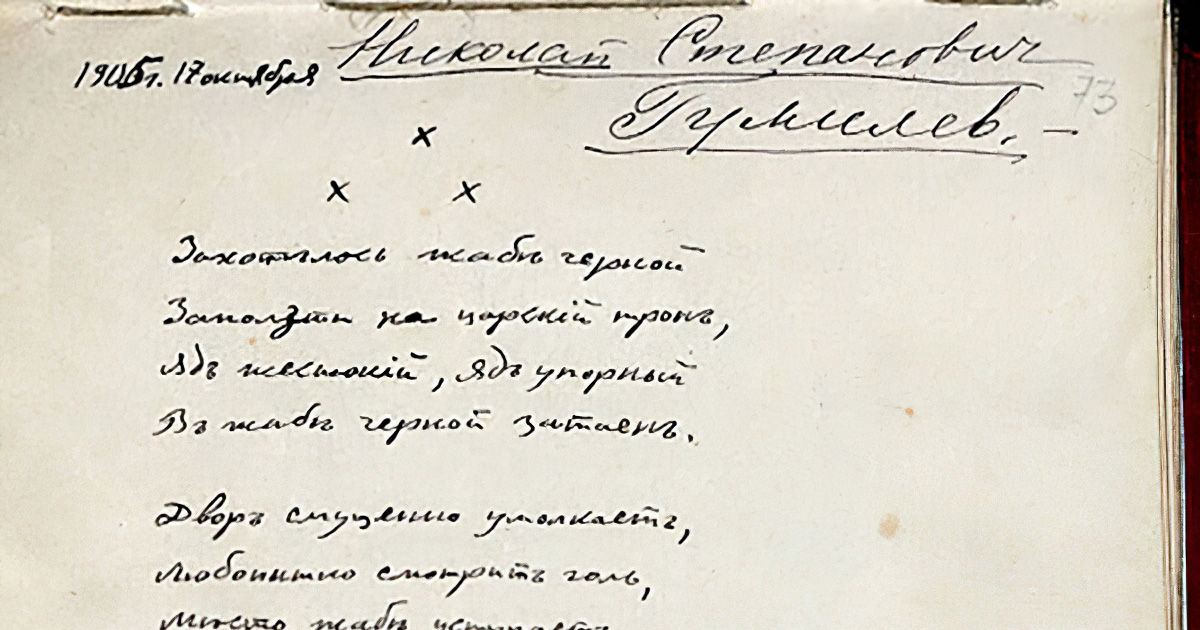 1905г. 17 октября
Николай Степанович
Гумилев. —
73
x
x x
Захотѣлось жабѣ черной
Заползти на царскій тронъ,
Ядъ жестокій, ядъ упорный
Въ жабѣ черной затаенъ.
Дворъ смущенно умолкаетъ,
Любопытно смотритъ голь,
Мѣсто жабѣ уступаетъ